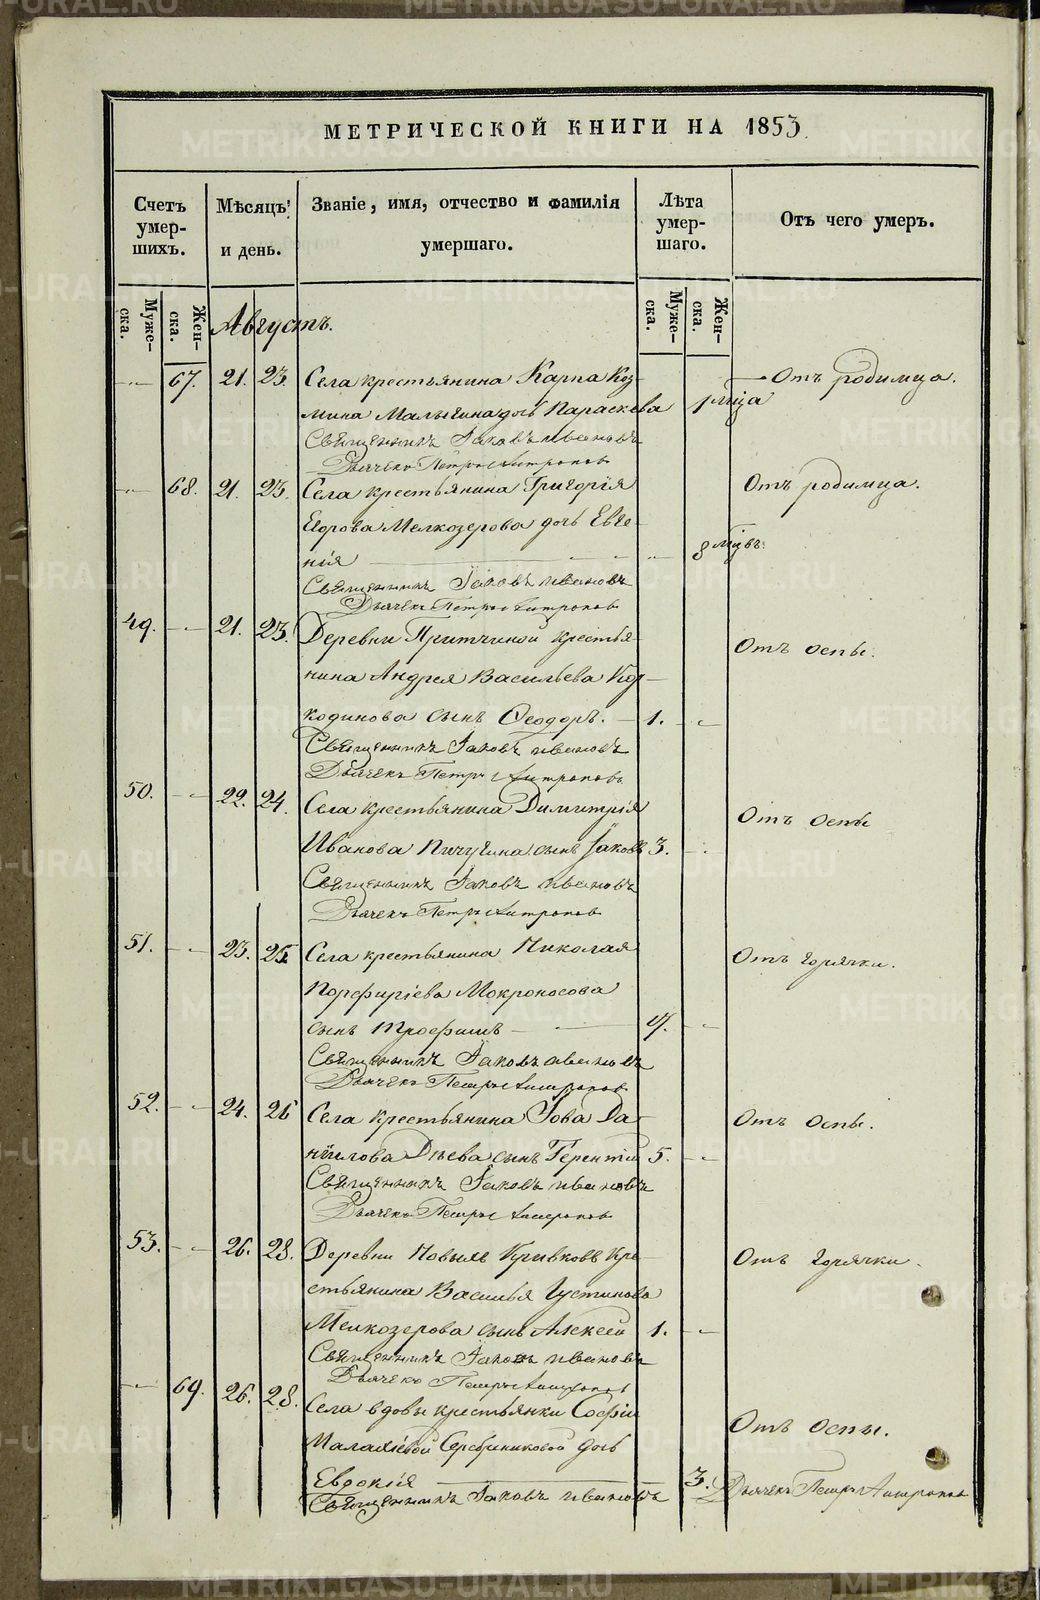 МЕТРИЧЕСКОЙ КНИГИ НА 1853
Счетъ умер-шихъ.
Мѣсяцъ и день.
Званіе, имя, отчество и фамилія умершаго.
Лѣта умер-шаго.
Отъ чего умеръ.
Муже-ска.
Жен-ска.
Муже-ска.
Жен-ска.
Августъ.
67. 21. 23. Села крестьянина Карпа Коз- Отъ родимца.
мина Малыгина дочь Параскева 1 мца
Священникъ Іаковъ Ивановъ
Дьячекъ Петръ Антропов
68. 21. 23. Села крестьянина Григорія Отъ родимца.
Егорова Мелкозерова дочь Евге-
нія 8 мцвъ
Священникъ Іаковъ Ивановъ
Дьячек Петръ Антропов
49. 21. 23. Деревни Притчиной крестья- Отъ оспы.
нина Андрея Васильева Кор-
кодинова сынъ Ѳеодоръ. 1.
Священникъ Іаковъ Ивановъ
Дьячекъ Петръ Антроповъ
50. 22. 24. Села крестьянина Димитрія Отъ оспы
Иванова Пичугина сынъ Іаковъ 3.
Священникъ Іаковъ Ивановъ
Дьячекъ Петръ Антропов
51. 23. 25. Села крестьянина Николая Отъ горячки.
Порфиріева Мокроносова
сынъ Трофимъ 17.
Священникъ Іаковъ Ивановъ
Дьячекъ Петръ Антропов
52. 24. 26 Села крестьянина Іова Да- Отъ оспы.
ніилова Дѣева сынъ Терентій 5.
Священникъ Іаковъ Ивановъ
Дьячекъ Петръ Антропов
53. 26. 28. Деревни Новыхъ Кривковъ кре- Отъ горячки.
стьянина Василья Устинова
Мелкозерова сынъ Алексей 1.
Священникъ Іаковъ Ивановъ
Дьячекъ Петръ Антропов
69. 26. 28. Села вдовы крестьянки Софіи Отъ оспы.
Малахіевой Серебрениковой дочь
Евдокія 3.
Священникъ Іаковъ Ивановъ Дьячекъ Петръ Антропов
METRIKI.GASU-URAL.RU